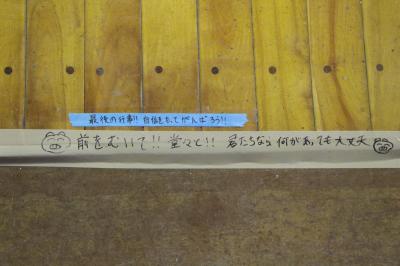 最後の行事!! 自信をもってがんばろう!!
前をむいて!! 堂々と!! 君たちなら何があっても大丈夫